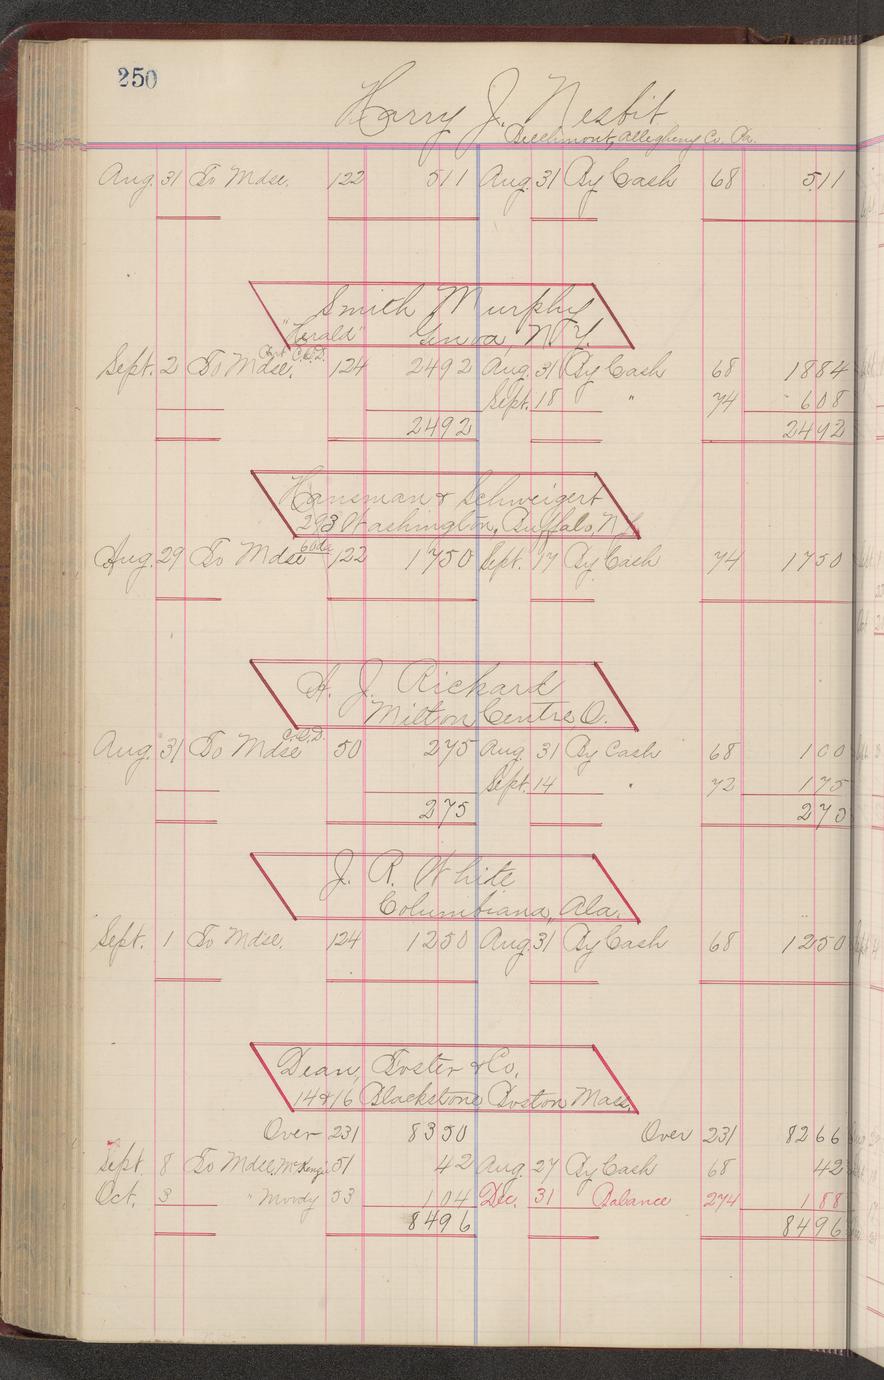 250
Harry J. Nesbit
Allegheny Co. Pa.
Aug. 31 To Mdse. 122 511 Aug. 31 By Cash 68 511
Smith Murphy
"Herald" Genoa, N.Y.
C.O.D.
Sept. 2 To Mdse. 124 2492 Aug. 31 By Cash 68 1884
Sept. 18 " 74 608
2492 2492
Hansman & Schweigert
293 Washington, Buffalo, N.Y.
60ds
Aug. 29 To Mdse 122 1750 Sept. 17 By Cash 74 1750
A. J. Rickard
Milton Centre, O.
C.O.D.
Aug. 31 To Mdse 50 275 Aug. 31 By Cash 68 100
Sept. 14 " 72 175
275 275
J. R. White
Columbiana, Ala.
Sept. 1 To Mdse. 124 1250 Aug. 31 By Cash 68 1250
Dean, Foster & Co.
14 & 16 Blackstone Boston Mass.
Over 231 8350 Over 231 8266
Sept. 8 To Mdse, McKenzie 51 42 Aug. 27 By Cash 68 42
Oct. 3 " Moody 53 104 Dec. 31 Balance 274 188
8496 8496